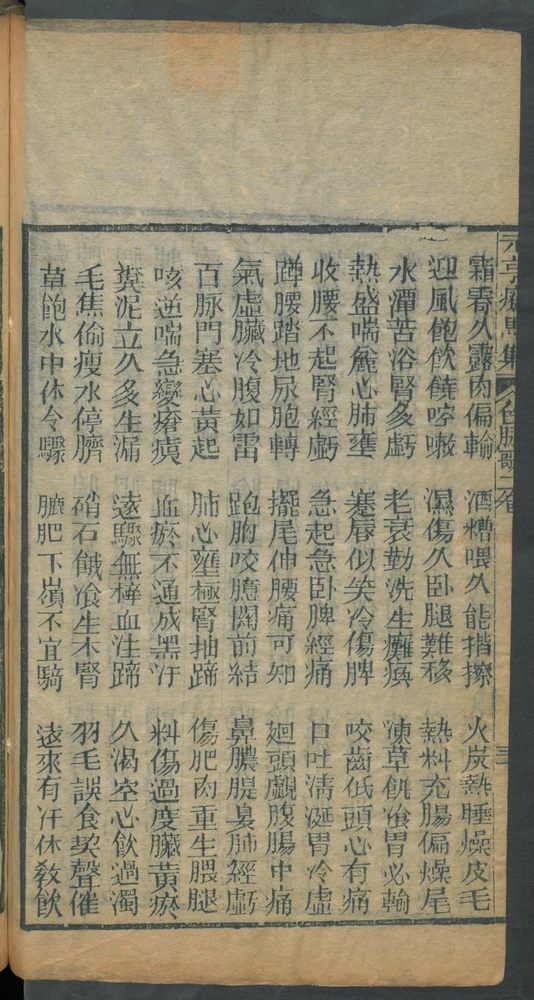 元亨療馬集 色脉歌 一卷 三
霜春久露肉偏輸 酒糟喂久能揩擦 火炭熱睡燥皮毛
迎風飽飲饒啌嗽 濕傷久卧腿難移 熱料充腸偏燥尾
水潭苦浴腎多虧 老衰勤洗生癱瘓 凍草飢飡胃必輸
熱盛喘麄心肺壅 蹇唇似笑冷傷脾 咬齒低頭心有痛
收腰不起腎經虧 急起急卧脾經痛 口吐清涎胃冷虛
蹲腰踏地尿胞轉 擺尾伸腰痛可知 廻頭覷腹腸中痛
氣虛臟冷腹如雷 跑胸咬臆闗前結 鼻膿腥臭肺經虧
百脉門塞心黃起 肺心壅極腎抽蹄 傷肥肉重生腲腿
咳逆喘急變瘠癀 血瘀不通成黑汗 料傷過度臟黃瘀
糞泥立久多生漏 遠驟無樁血注蹄 久渴空心飲過濁
毛焦偷瘦水停臍 硝石餓飡生木腎 羽毛誤食㓞聲催
草飽水中休令驟 臕肥下嶺不宜騎 遠來有汗休教飲